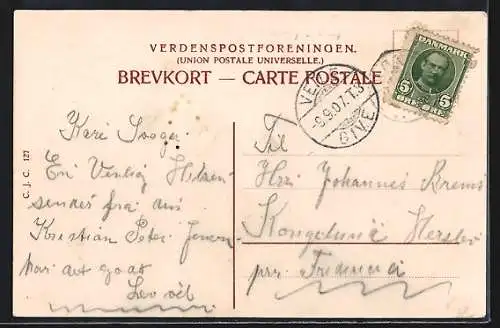 VERDENSPOSTFORENINGEN.
(UNION POSTALE UNIVERSELLE.)
BREVKORT — CARTE POSTALE
DANMARK
5 5
VEJLE
-9.9.07. T.3
GIVE
C. J. C. 127
Kære
En Venlig Hilsen
sendes fra din
Kristian Peter Jensen
har det godt
Lev vel
Til
Hrr Johannes
Herslev
pr. Fredericia